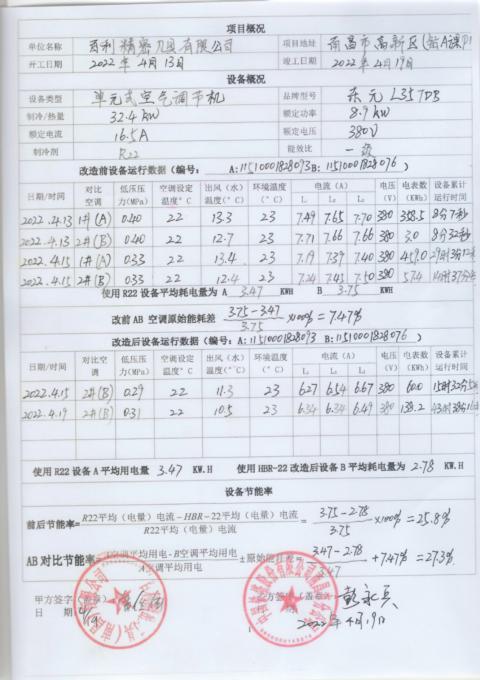 项目概况
单位名称 百利精密刀具有限公司 项目地址 南昌市高新区
开工日期 2022年4月13日 竣工日期 2022年4月19日
设备概况
设备类型 单元式空气调节机 品牌型号 东元 L357DB
制冷/热量 32.4KW 额定功率 8.9KW
额定电流 16.5A 额定电压 380V
制冷剂 R22 能效比 一级
改造前设备运行数据(编号: A:11510001828093 B:11510001828076 )
日期/时间 对比空调 低压压力(MPa) 空调设定温度°C 出风(水)温度(°C) 环境温度(°C) 电流(A) L₁ L₂ L₃ 电压(V) 电表数(KWh) 设备累计运行时间
2022.4.13 1#(A) 0.40 22 13.3 23 7.49 7.65 7.70 380 358.5 8分7秒
2022.4.13 2#(B) 0.40 22 12.7 23 7.71 7.66 7.66 380 3.0 8分32秒
2022.4.15 1#(A) 0.33 22 13.4 23 7.19 7.39 7.40 380 459.0
2022.4.15 2#(B) 0.33 22 12.4 23 7.24 7.43 7.50 380 57.4
使用 R22 设备平均耗电量为 A 3.47 KWH B 3.75 KWH
改前 AB 空调原始能耗差 3.75-3.47 / 3.75 ×100% =7.47%
改造后设备运行数据(编号: A:11510001828093 B:11510001828076 )
日期/时间 对比空调 低压压力(MPa) 空调设定温度°C 出风(水)温度(°C) 环境温度(°C) 电流(A) L₁ L₂ L₃ 电压(V) 电表数(KWh) 设备累计运行时间
2022.4.15 2#(B) 0.29 22 11.3 23 6.27 6.54 6.67 380 60.0
2022.4.19 2#(B) 0.31 22 10.5 23 6.34 6.34 6.49 380 139.2
使用 R22 设备 A 平均用电量 3.47 KW.H 使用 HBR-22 改造后设备 B 平均耗电量为 2.78 KW.H
设备节能率
前后节能率= R22平均(电量)电流-HBR-22平均(电量)电流 / R22平均(电量)电流 = 3.75-2.78 / 3.75 ×100% =25.8%
AB 对比节能率= A空调平均用电-B空调平均用电 / A空调平均用电 ±原始能耗差= 3.47-2.78 / 3.47 +7.47% =27.3%
甲方签字(盖章) 乙方签字(盖章) 彭永兵
日 期 4/19 2022年4月19日